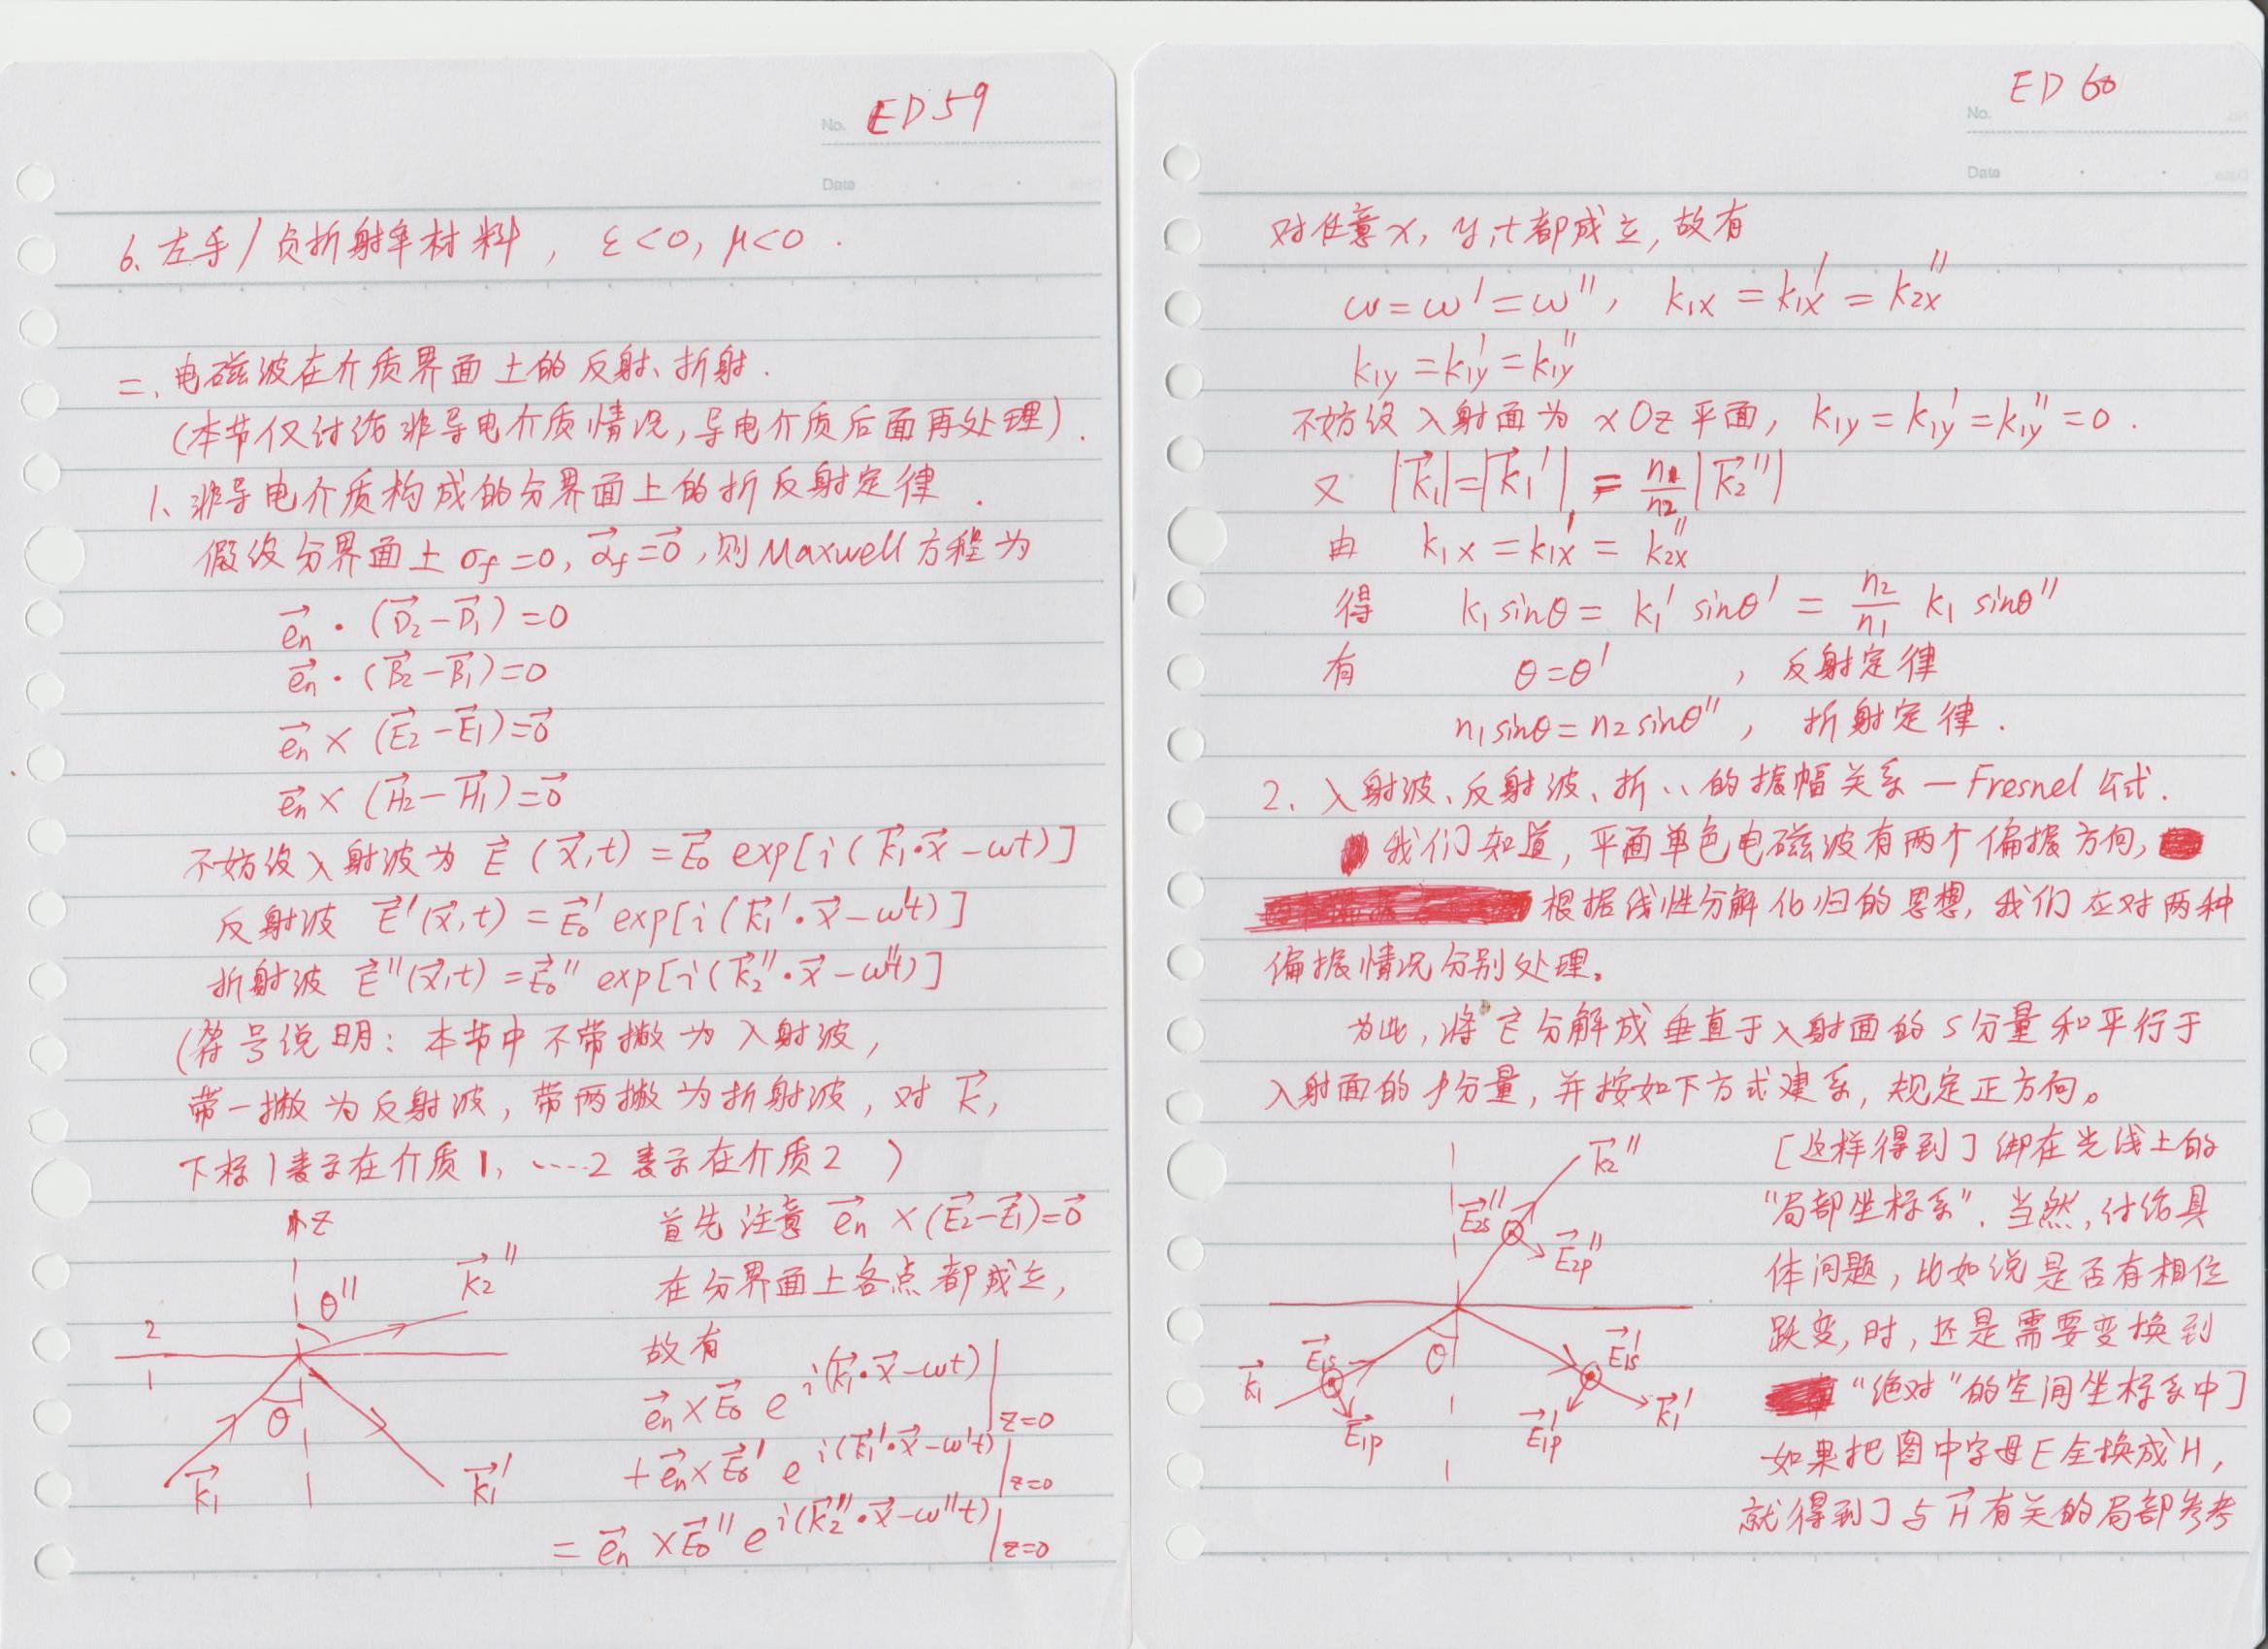 ED 59
No.
Date
6、左手/负折射率材料，ε<0, μ<0.
二、电磁波在介质界面上的反射、折射.
(本节仅讨论非导电介质情况,导电介质后面再处理).
1、非导电介质构成的分界面上的折反射定律.
假设分界面上 σf=0, α⃗f=0⃗,则Maxwell方程为
e⃗n·(D⃗2−D⃗1)=0
e⃗n·(B⃗2−B⃗1)=0
e⃗n×(E⃗2−E⃗1)=0⃗
e⃗n×(H⃗2−H⃗1)=0⃗
不妨设入射波为 E⃗(x⃗,t)=E⃗0 exp[i(k⃗1·x⃗−ωt)]
反射波 E⃗'(x⃗,t)=E⃗0' exp[i(k⃗1'·x⃗−ω't)]
折射波 E⃗''(x⃗,t)=E⃗0'' exp[i(k⃗2''·x⃗−ω''t)]
(符号说明：本节中不带撇为入射波,
带一撇为反射波,带两撇为折射波,对k⃗,
下标1表示在介质1,……2表示在介质2)
z
θ''
k⃗2''
2
1
θ
k⃗1
k⃗1'
首先注意 e⃗n×(E⃗2−E⃗1)=0⃗
在分界面上各点都成立,
故有
e⃗n×E⃗0 e^{i(k⃗1·x⃗−ωt)}|z=0
+e⃗n×E⃗0' e^{i(k⃗1'·x⃗−ω't)}|z=0
=e⃗n×E⃗0'' e^{i(k⃗2''·x⃗−ω''t)}|z=0
ED 60
No.
Date
对任意x, y,t都成立,故有
ω=ω'=ω'', k1x=k1x'=k2x''
k1y=k1y'=k1y''
不妨设入射面为xOz平面, k1y=k1y'=k1y''=0.
又 |k⃗1|=|k⃗1'|=n1/n2|k⃗2''|
由 k1x=k1x'=k2x''
得 k1 sinθ=k1' sinθ'=n2/n1 k1 sinθ''
有 θ=θ' , 反射定律
n1sinθ=n2sinθ'', 折射定律.
2、入射波、反射波、折..的振幅关系—Fresnel公式.
我们知道,平面单色电磁波有两个偏振方向,
根据线性分解化归的思想,我们应对两种
偏振情况分别处理。
为此,将E⃗分解成垂直于入射面的s分量和平行于
入射面的p分量,并按如下方式建系,规定正方向。
k⃗2''
E⃗2s''
E⃗2p''
θ
k⃗1
E⃗1s
E⃗1p
E⃗1s'
E⃗1p'
k⃗1'
[这样得到了绑在光线上的
"局部坐标系".当然,讨论具
体问题,比如说是否有相位
跃变,时,还是需要变换到
"绝对"的空间坐标系中]
如果把图中字母E全换成H,
就得到了与H⃗有关的局部参考